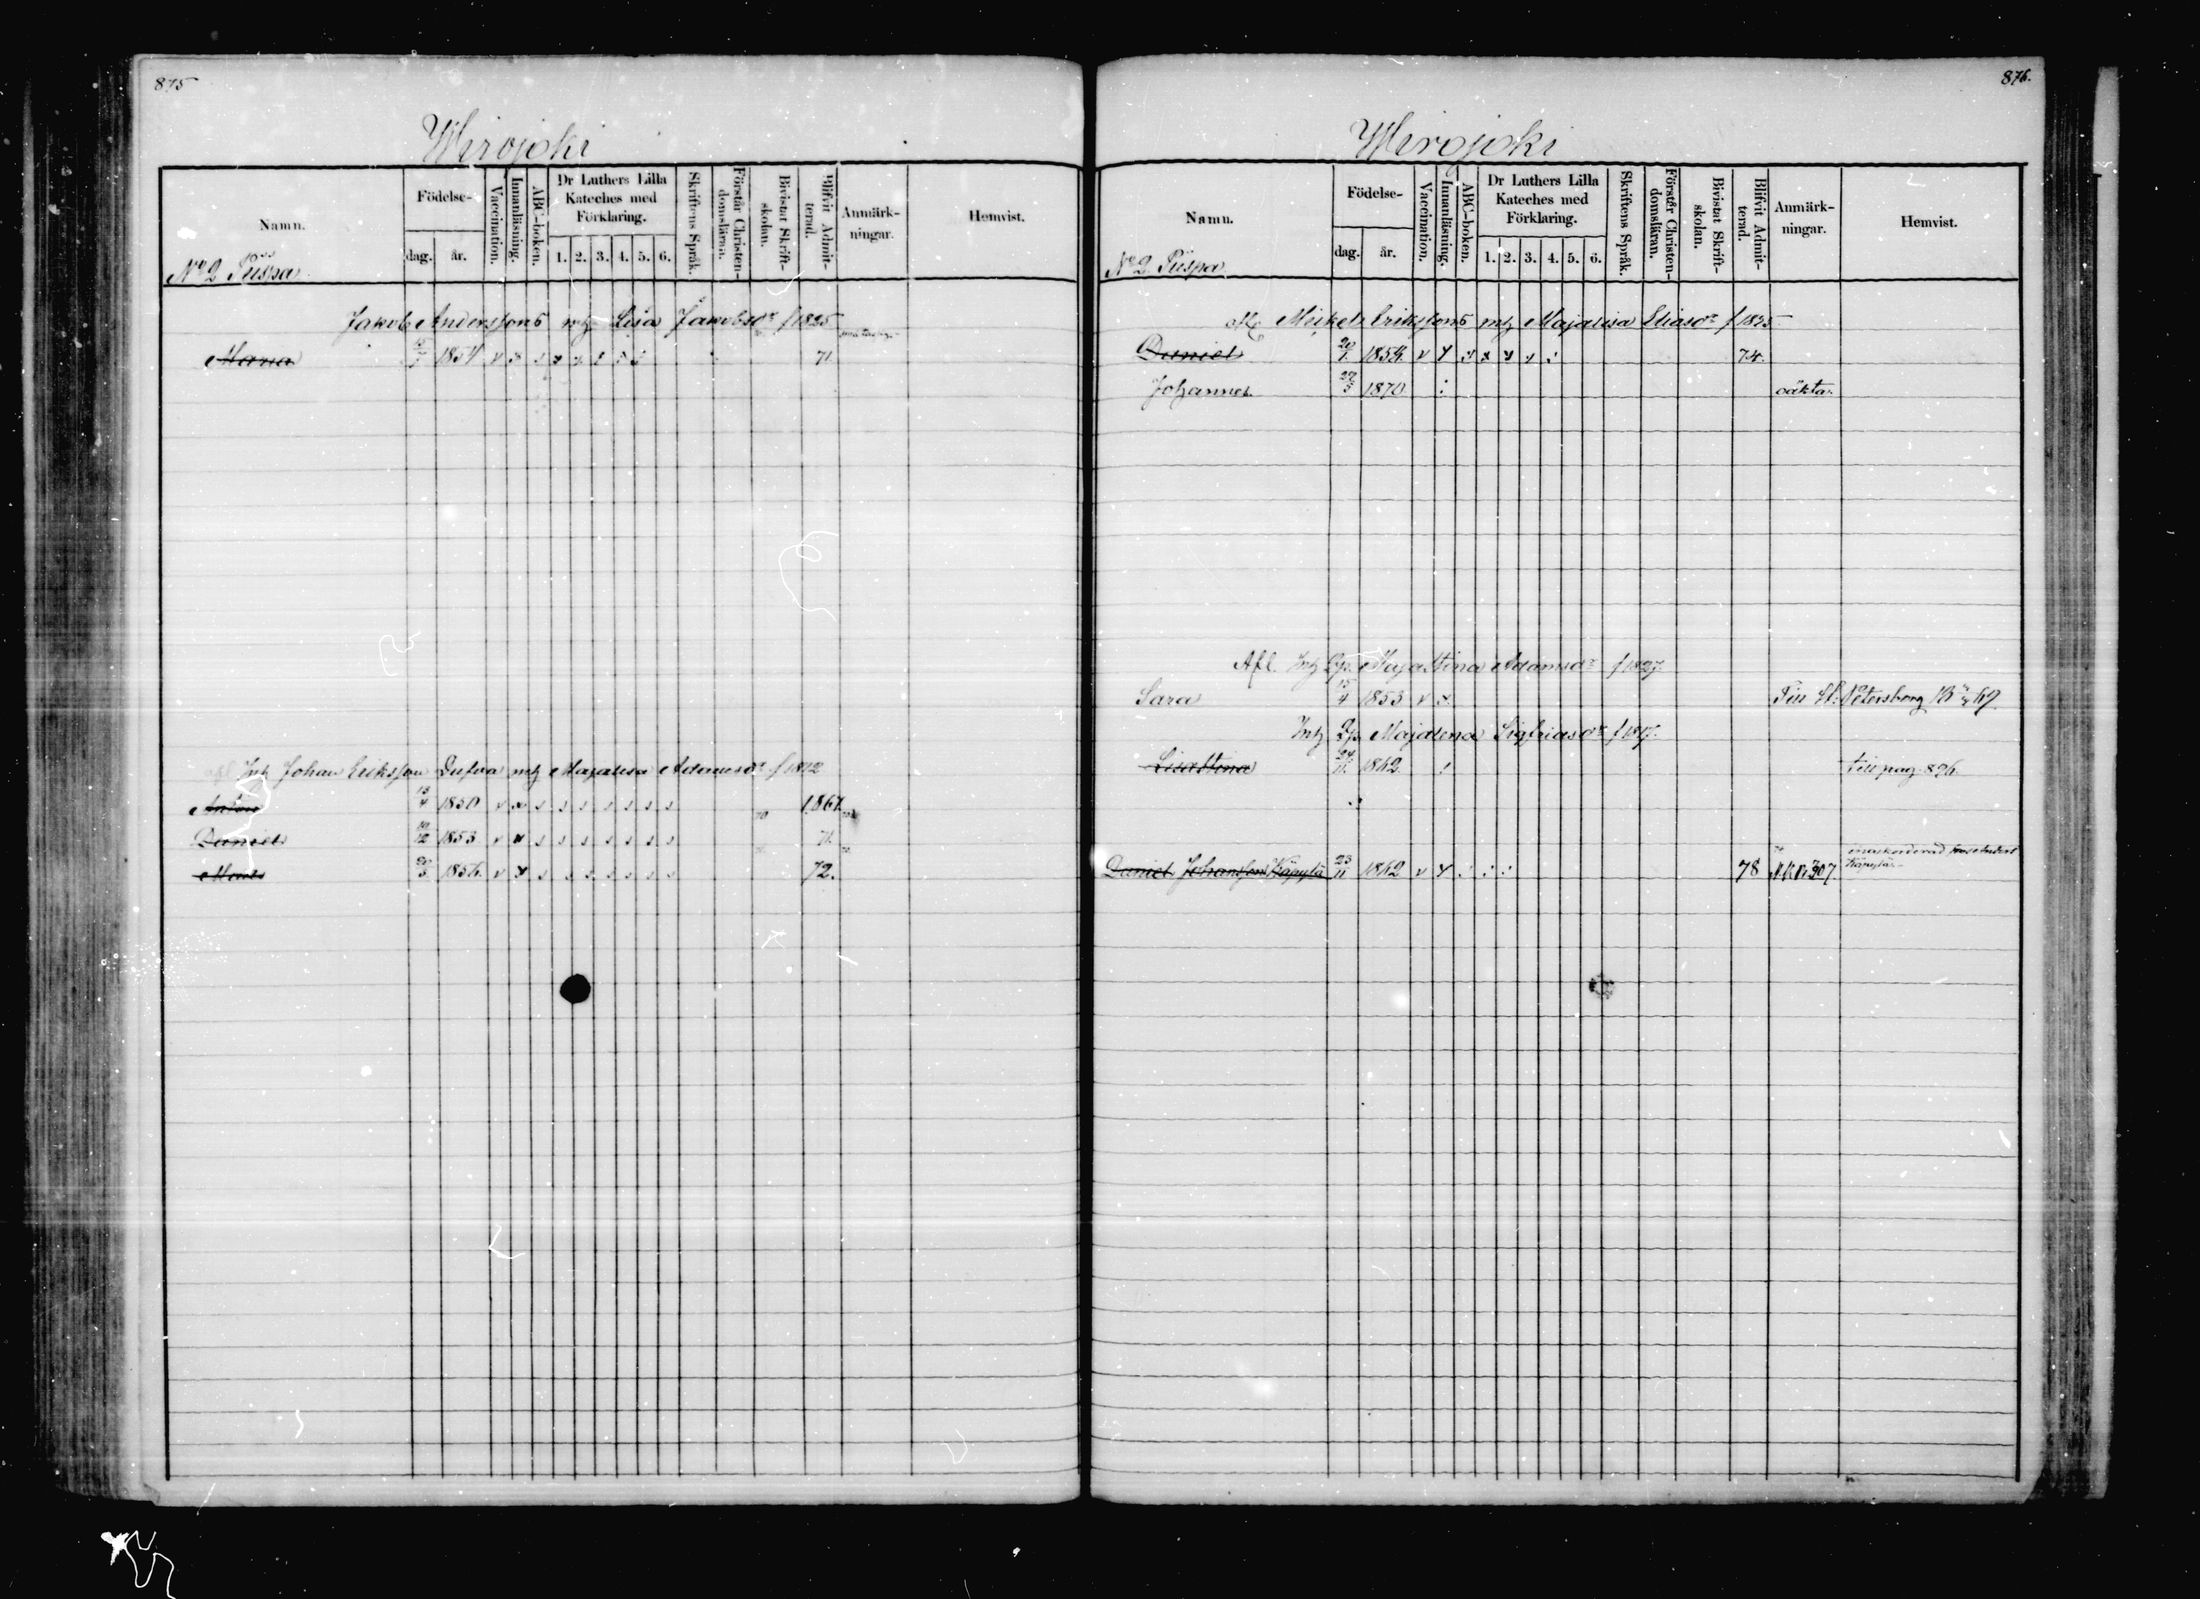 875
Wirojoki
Namn.
Födelse-
dag.
år.
Vaccination.
Innanläsning.
ABC-boken.
Dr Luthers Lilla
Kateches med
Förklaring.
1. 2. 3. 4. 5. 6.
Skriftens Språk.
Förstår Christen-
domsläran.
Bivistat Skrift-
skolan.
Blifvit Admit-
terad.
Anmärk-
ningar.
Hemvist.
No 2 Piispa
Jakob Anderssons mh Lisa Jakobsdr f 1825
Maria 1854 71.
Inh Johan Eriksson Dufva mh Majalisa Adamsdr f 1812
Anton 13/4 1850 1867
Daniel 10/12 1853 71.
Moses 20/5 1856 72.
876.
Wirojoki
Namn.
Födelse-
dag.
år.
Vaccination.
Innanläsning.
ABC-boken.
Dr Luthers Lilla
Kateches med
Förklaring.
1. 2. 3. 4. 5. 6.
Skriftens Språk.
Förstår Christen-
domsläran.
Bivistat Skrift-
skolan.
Blifvit Admit-
terad.
Anmärk-
ningar.
Hemvist.
No 2 Piispa
afl Mickel Erikssons mh Majalisa Eliasdr f 1825
Daniel 20/1 1854. 74.
Johannes 1870 oäkta.
Afl. Inh Majastina Adamsdr f 1827.
Sara 15/4 1853 Till St. Petersborg 69
Inh Majalena Sigfridsdr f 1817.
Lisastina 24/11 1862. till pag. 896.
Daniel Johansson Käpylä 23/11 1862 78 307
Käpylä